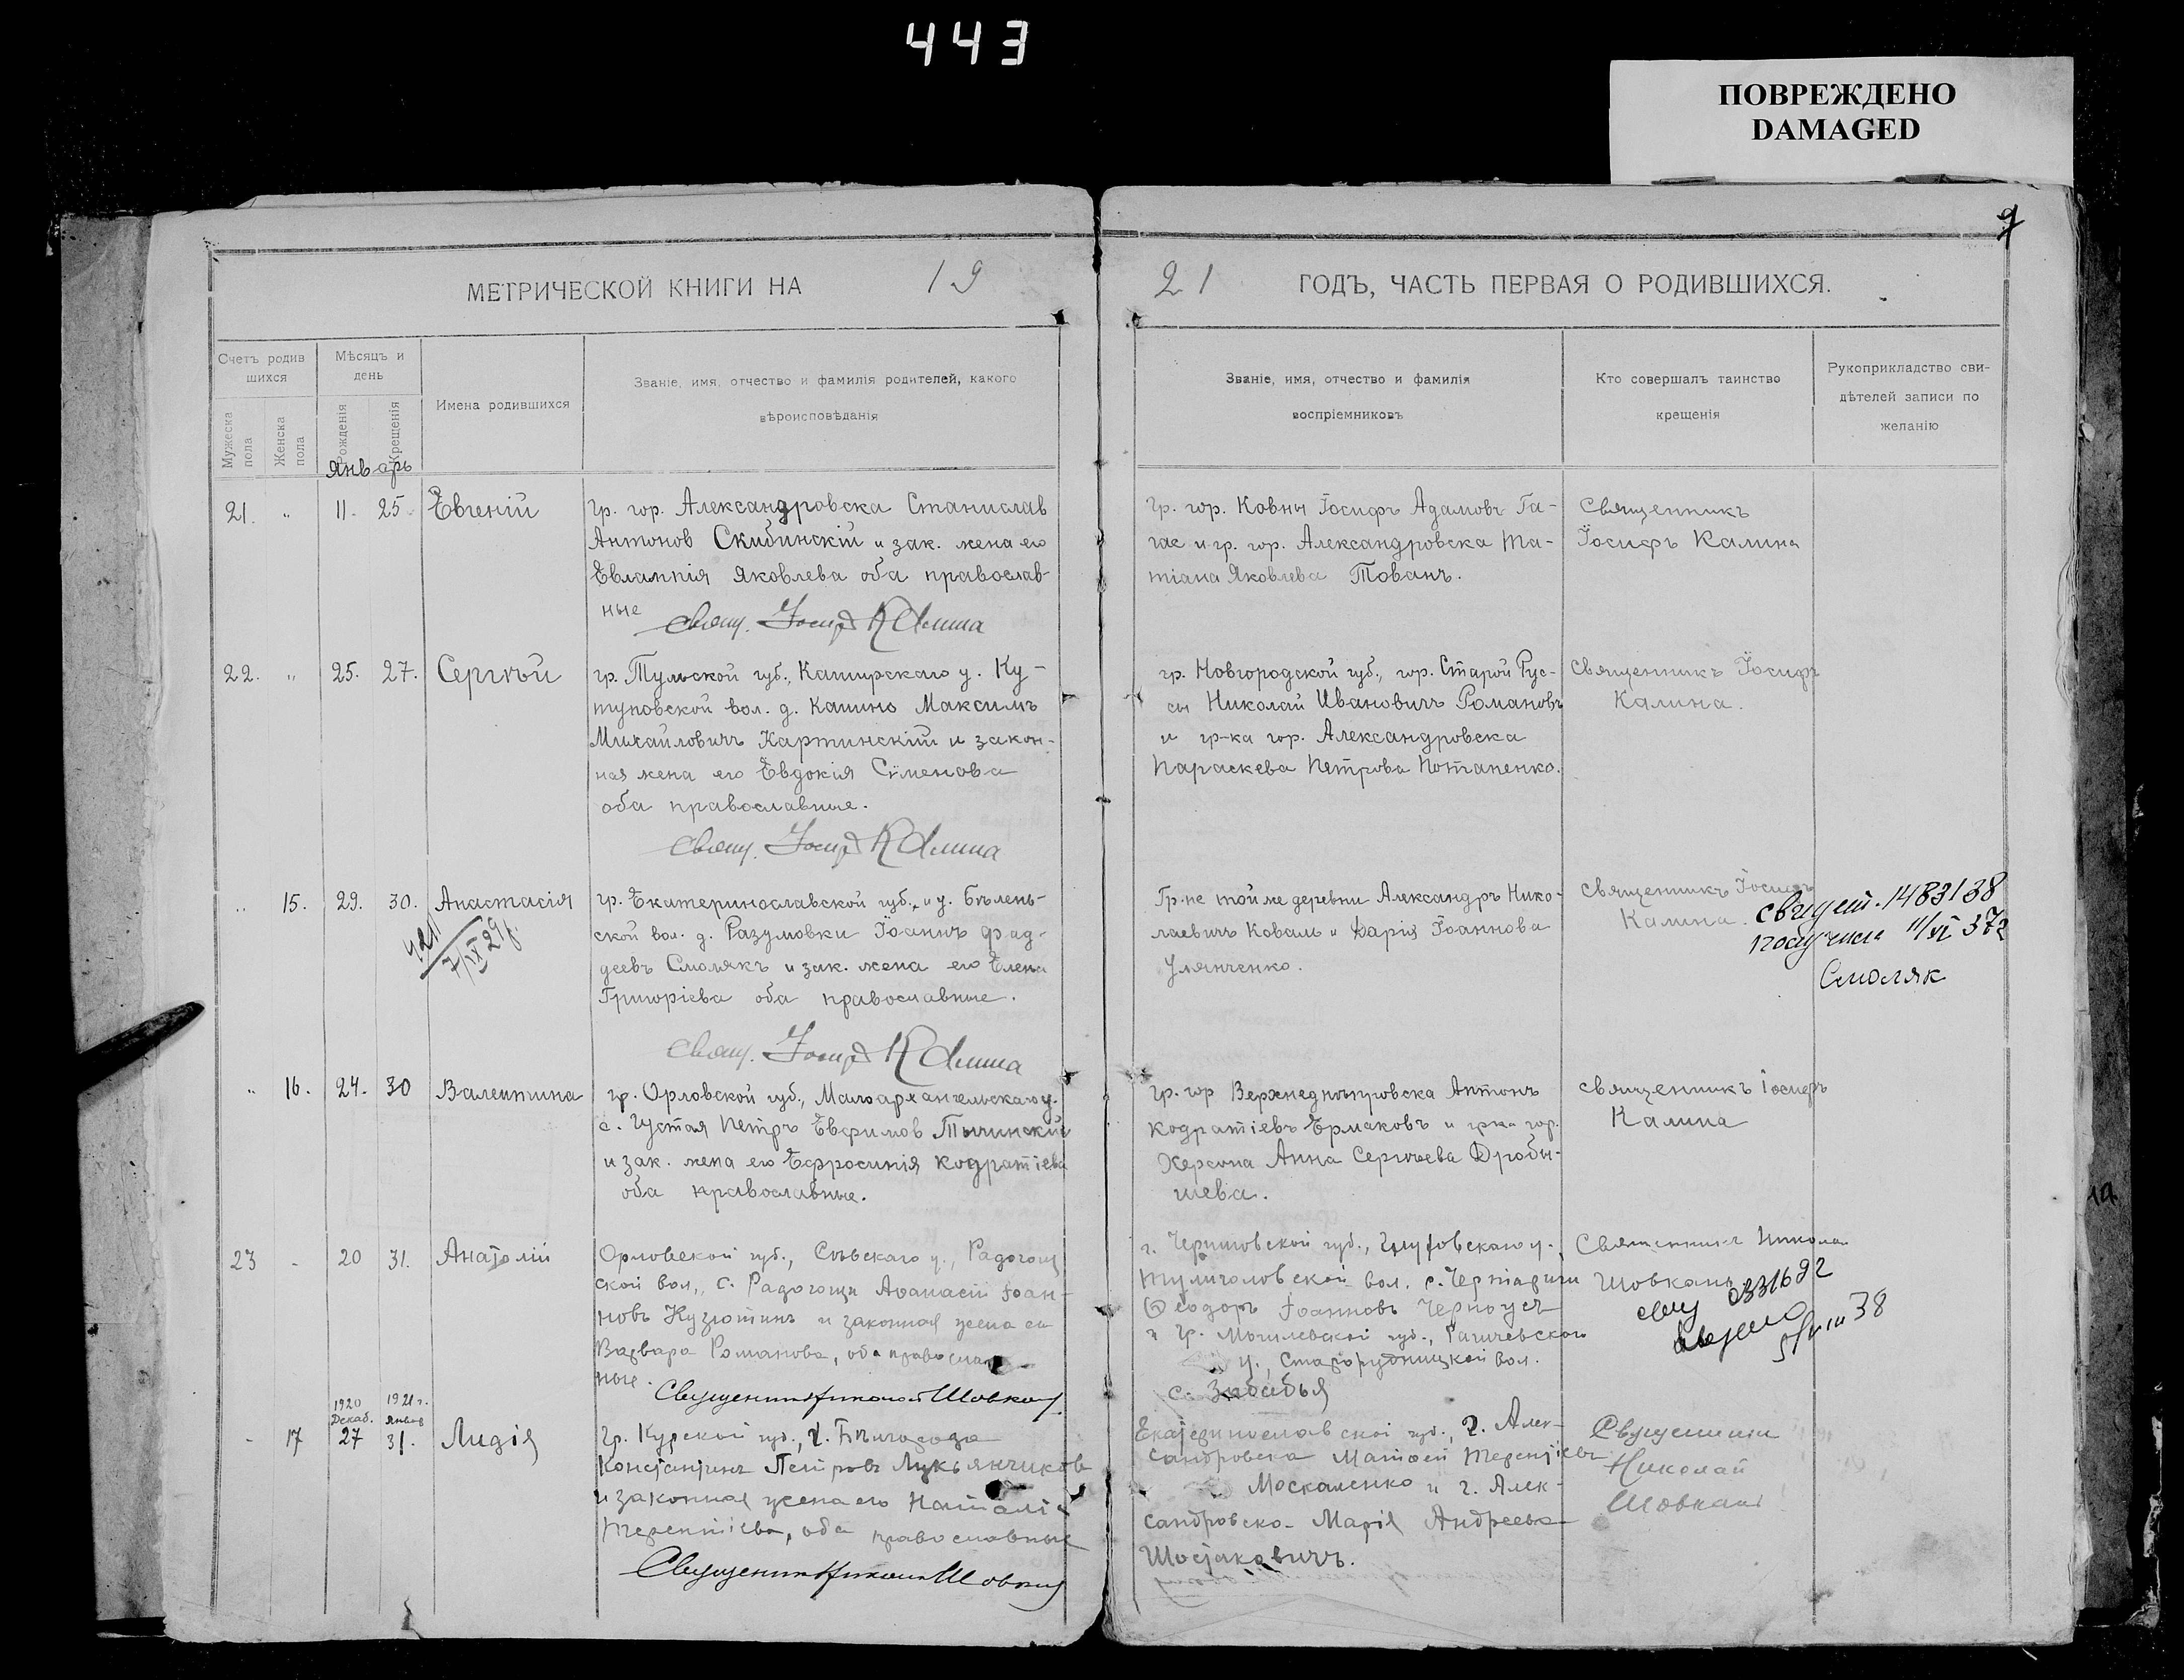 443
ПОВРЕЖДЕНО
DAMAGED
9
МЕТРИЧЕСКОЙ КНИГИ НА 19
21 ГОДЪ, ЧАСТЬ ПЕРВАЯ О РОДИВШИХСЯ.
Счетъ родив
шихся
Мужеска
пола
Женска
пола
Мѣсяцъ и
день
Рожденія
Крещенія
Имена родившихся
Званіе, имя, отчество и фамилія родителей, какого
вѣроисповѣданія
Званіе, имя, отчество и фамилія
воспріемниковъ
Кто совершалъ таинство
крещенія
Рукоприкладство сви-
дѣтелей записи по
желанію
Январь
21. " 11. 25. Евгеній
гр. гор. Александровска Станислав
Антонов Скибинскій и зак. жена его
Евлампія Яковлева оба православ-
ные
Свящ. Іосиф Калина
гр. гор. Ковны Іосифъ Адамовъ Га-
гае и гр. гор. Александровска Та-
тіана Яковлева Тованъ.
Священникъ
Іосифъ Калина
22. " 25. 27. Сергѣй
гр. Тульской губ., Каширскаго у. Ку-
туновской вол. д. Кашино Максимъ
Михайловичъ Картинскій и закон-
ная жена его Евдокія Сіменова
оба православные.
Свящ. Іосиф Калина
гр. Новгородской губ., гор. Старой Рус-
сы Николай Ивановичъ Романовъ
и гр-ка гор. Александровска
Параскева Петрова Потапенко.
Священникъ Іосифъ
Калина.
" 15. 29. 30. Анастасія
421
7/IX 29 г.
гр. Екатеринославской губ., и у. Бѣлень-
ской вол. д. Разумовки Іоаннъ Фад-
деевъ Смолякъ и зак. жена его Елена
Григоріева оба православные.
Свящ. Іосиф Калина
Гр-не той же деревни Александръ Нико-
лаевичъ Коваль и Дарія Іоаннова
Улянченко.
Священникъ Іосифъ
Калина.
свидет. 1483138
получила 11/VI 37 г
Смоляк
" 16. 24. 30 Валентина
гр. Орловской губ., Малоархангельскаго у.
с. Густая Петръ Евфимов Тычинскій
и зак. жена его Ефросинія Кодратіева
оба православные.
гр. гор Верхнеднѣпровска Антонъ
Кодратіевъ Ермаковъ и гр-ка гор.
Херсона Анна Сергѣева Дробы-
шева.
Священникъ Іосифъ
Калина
23 - 20 31. Анатолій
Орловской губ., Сѣвскаго у., Радогощ
ской вол., с. Радогощи Аѳанасій Іоан-
новъ Кузютинъ и законная жена его
Варвара Романова, оба православ-
ные.
Священник Николай Шовкань
г. Черниговской губ., Глуховскаго у.,
Тулиголовской вол. с. Чертаричи
Ѳеодоръ Іоанновъ Черноусъ
и гр. Могилевской губ., Рагачевскаго
у., Старорудницкой вол.
с. Забабья
Священникъ Николай
Шовкань
0331692
38
- 17
1920
Декаб.
27
1921 г.
Январ
31.
Лидія
Гр. Курской губ., г. Бѣлгорода
Константинъ Петровъ Лукьянчиков
и законная жена его Наталія
Терентіева, оба православные
Священник Николай Шовкань
Екатеринославской губ., г. Алек-
сандровска Матѳей Терентіевъ
Москаленко и г. Алек-
сандровска Марія Андреева
Шостаковичъ.
Священник
Николай
Шовкань